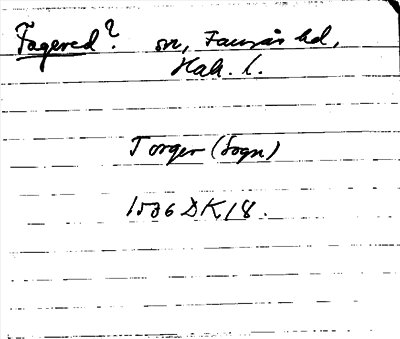 Fagered? sn, Faurås hd,
Hall. l.
Torger (sogn)
1576 DK18.